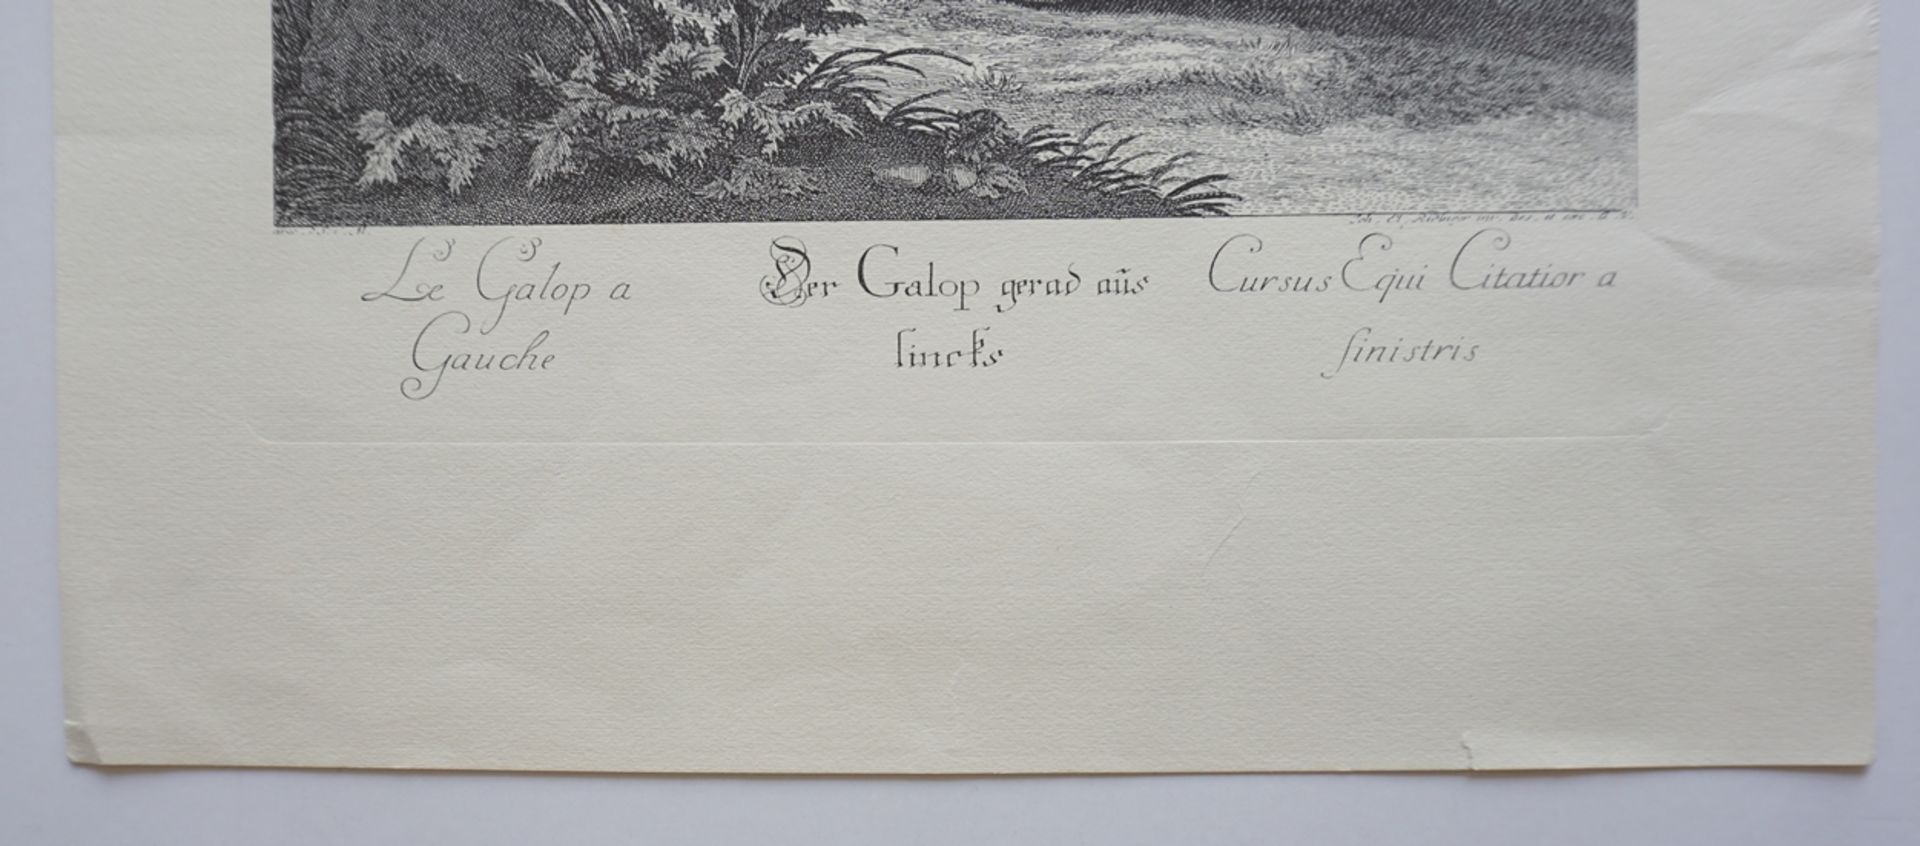 Joh. El. Ridinger inv. del.
Le Galop a
Gauche
Der Galop gerad aũs
lincks
Cursus Equi Citatior a
sinistris